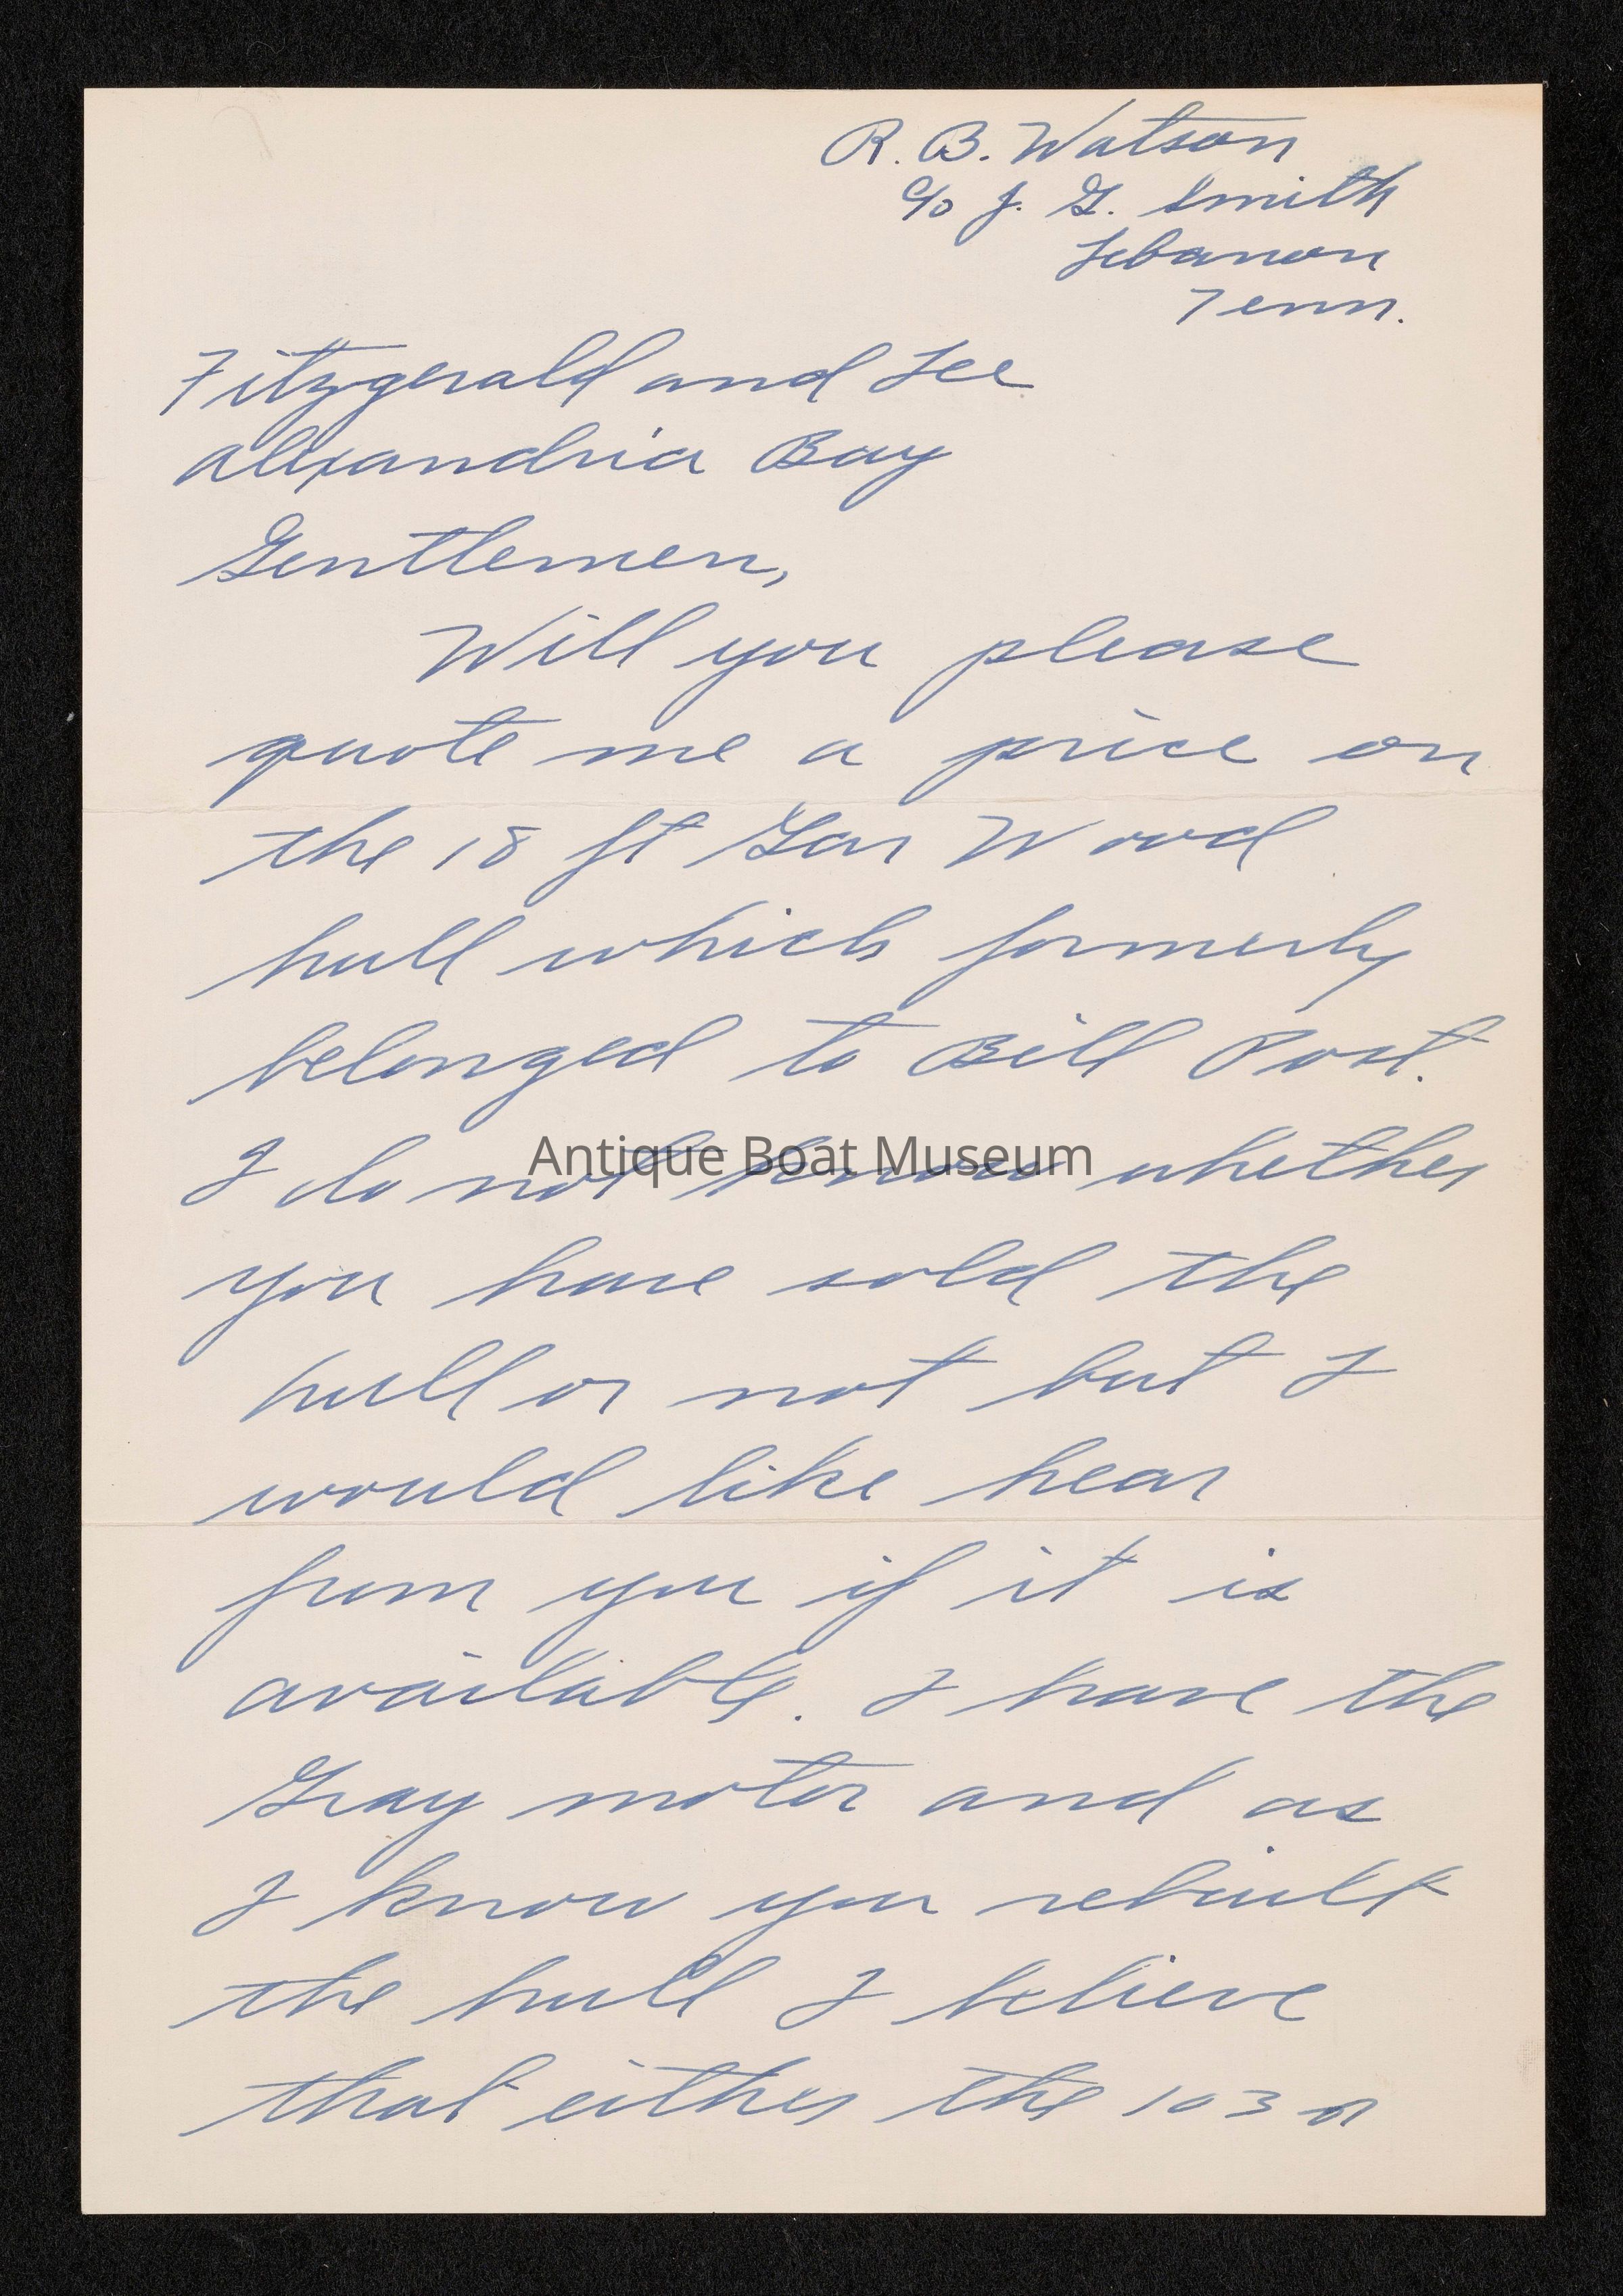 R. B. Watson
c/o J. G. Smith
Lebanon
Tenn.
Fitzgerald and Lee
Alexandria Bay
Gentlemen,
Will you please
quote me a price on
the 18 ft Gar Wood
hull which formerly
belonged to Bill Post.
I do not know whether
Antique Boat Museum
you have sold the
hull or not but I
would like hear
from you if it is
available. I have the
Gray motor and as
I know you rebuilt
the hull I believe
that either the 103 or